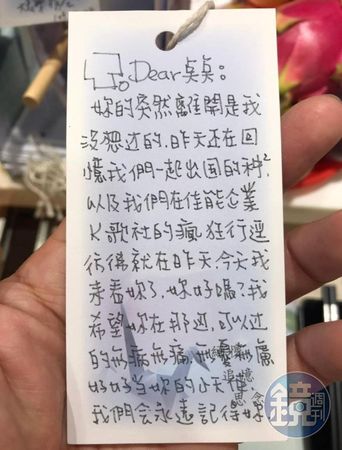 Dear
妳的突然離開是我
沒想过的,昨天还在回
憶我們一起出国的种²
以及我們在佳能企業
K歌社的瘋狂行逕
彷彿就在昨天,今天我
来看妳了,妳好嗎?我
希望妳在那边,可以过
的無病無痛,無憂無慮
好好当妳的小天使
我們会永遠記得妳
追憶
思念
鏡週刊